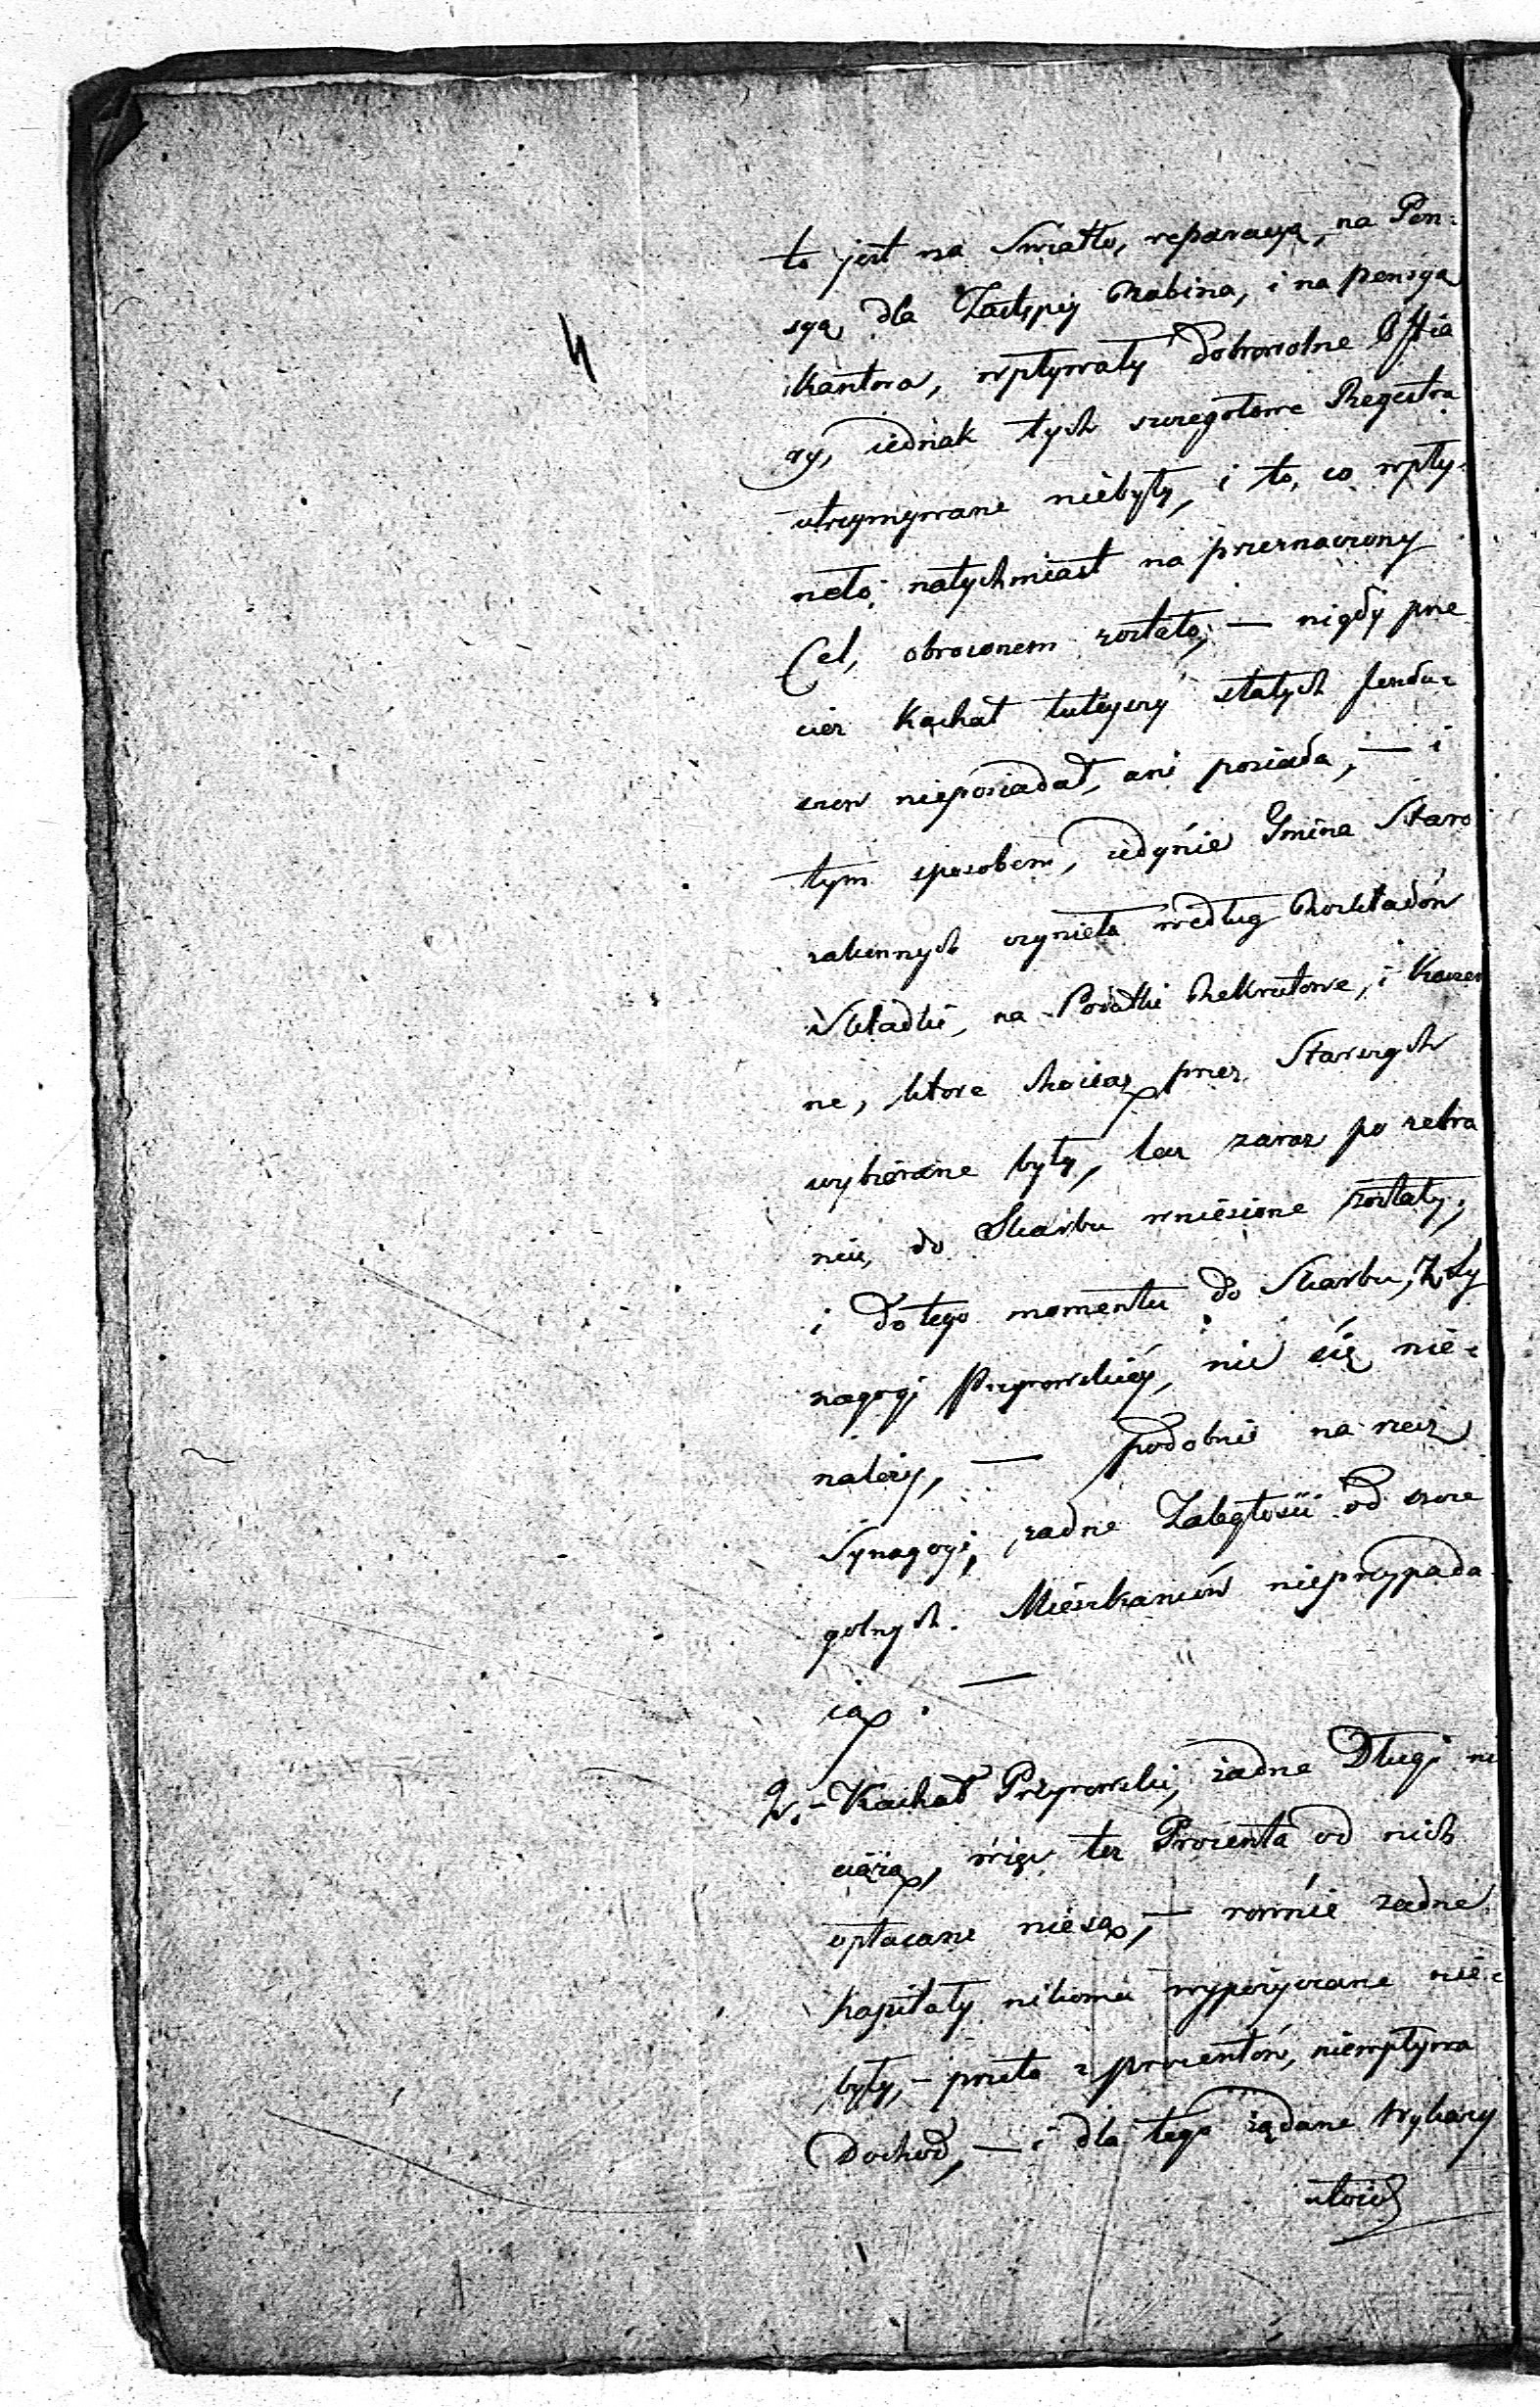 4
to jest na Swiatło, reparacyą, na Pen=
syą dla Zastępcy Rabina, i na pensyą
Kantora, wpływały dobrowolne Offia
ry, iednak tych szczegołowe Regestra
utrzymywane niebyły, i to, co wpły=
neło, natychmiast na przeznaczony
Cel, obroconem zostało; — nigdy prze
ciez Kachał tuteyszy stałych fundu=
szow nieposiadał, ani posiada, — i
tym sposobem, iedynie Gmina Staro
zakonnych czynieła według Rozkładów
Składki, na Podatki Rekrutowe, i Koszer
ne, ktore chociaz przez Starszych
wybierane były, lecz zaraz po zebra
niu, do Skarbu wniesione zostały;
i do tego momentu do Skarbu, z Sy
nagogi Przyrowskiéy, nic się nie=
należy, — podobnie na rzecz
Synagogi, żadne Zaległosci od szcze
gulnych Mieszkancow nieprzypada
ią. —
2. - Kachał Przyrowski, żadne Długi nie
ciążą, więc tez Procenta od nich
opłacane niesą, — rownie żadne
Kapitały nikomu wypożyczane nie=
były, - przeto z procentów, niewpływa
Dochod, — i dla tego żądane Wykazy